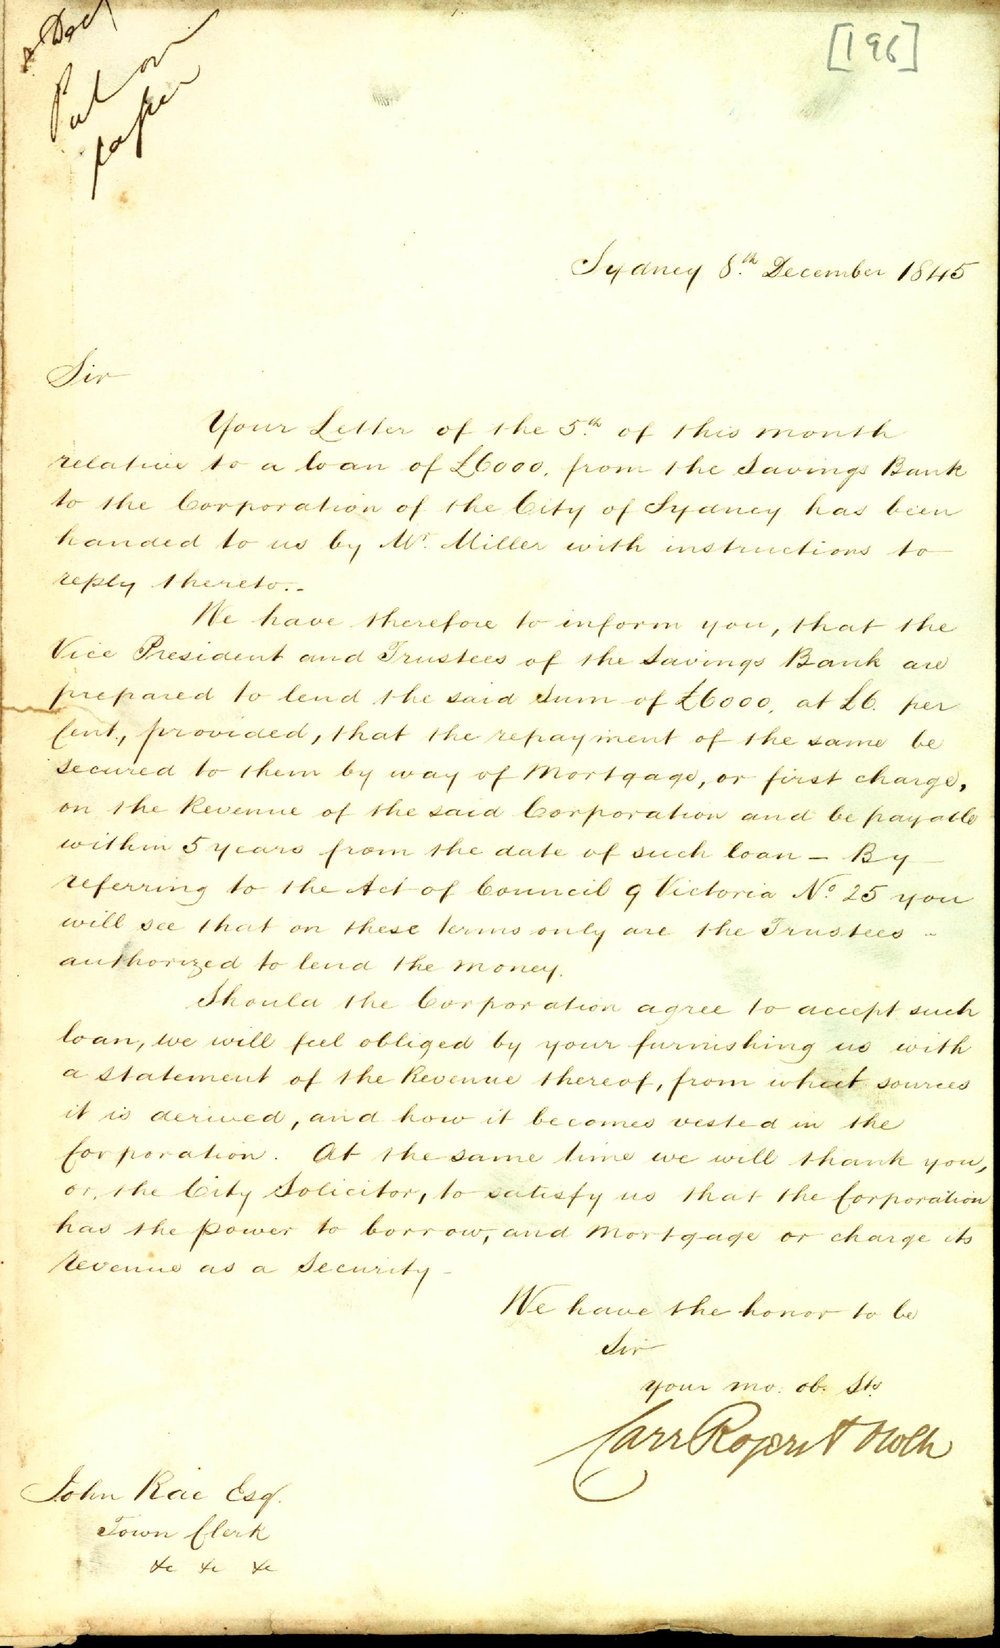 [196]
Put on
paper
Sydney 8th December 1845
Sir
Your Letter of the 5th of this month
relative to a loan of £6000, from the Savings Bank
to the Corporation of the City of Sydney has been
handed to us by Mr. Miller with instructions to
reply thereto..
We have therefore to inform you, that the
Vice President and Trustees of the Savings Bank are
prepared to lend the said Sum of £6000, at £6. per
Cent., provided, that the repayment of the same be
secured to them by way of Mortgage, or first charge,
on the Revenue of the said Corporation and be payable
within 5 years from the date of such loan — By
referring to the Act of Council 9 Victoria No. 25 you
will see that on these terms only are the Trustees -
authorized to lend the money.
Should the Corporation agree to accept such
loan, we will feel obliged by your furnishing us with
a statement of the Revenue thereof, from what sources
it is derived, and how it becomes vested in the
Corporation. At the same time we will thank you,
or, the City Solicitor, to satisfy us that the Corporation
has the power to borrow, and Mortgage or charge its
Revenue as a Security -
We have the honor to be
Sir
your mo. ob. Sts.
Carr Rogers &
John Rae Esq.
Town Clerk
&c &c &c